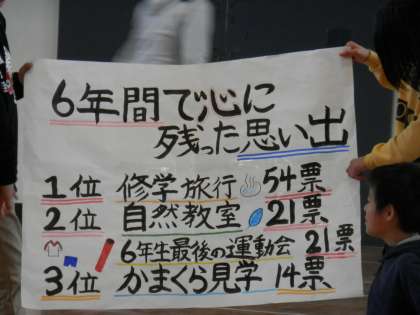 6年間で心に
残った思い出
1位 修学旅行 54票
2位 自然教室 21票
6年生最後の運動会 21票
3位 かまくら見学 14票